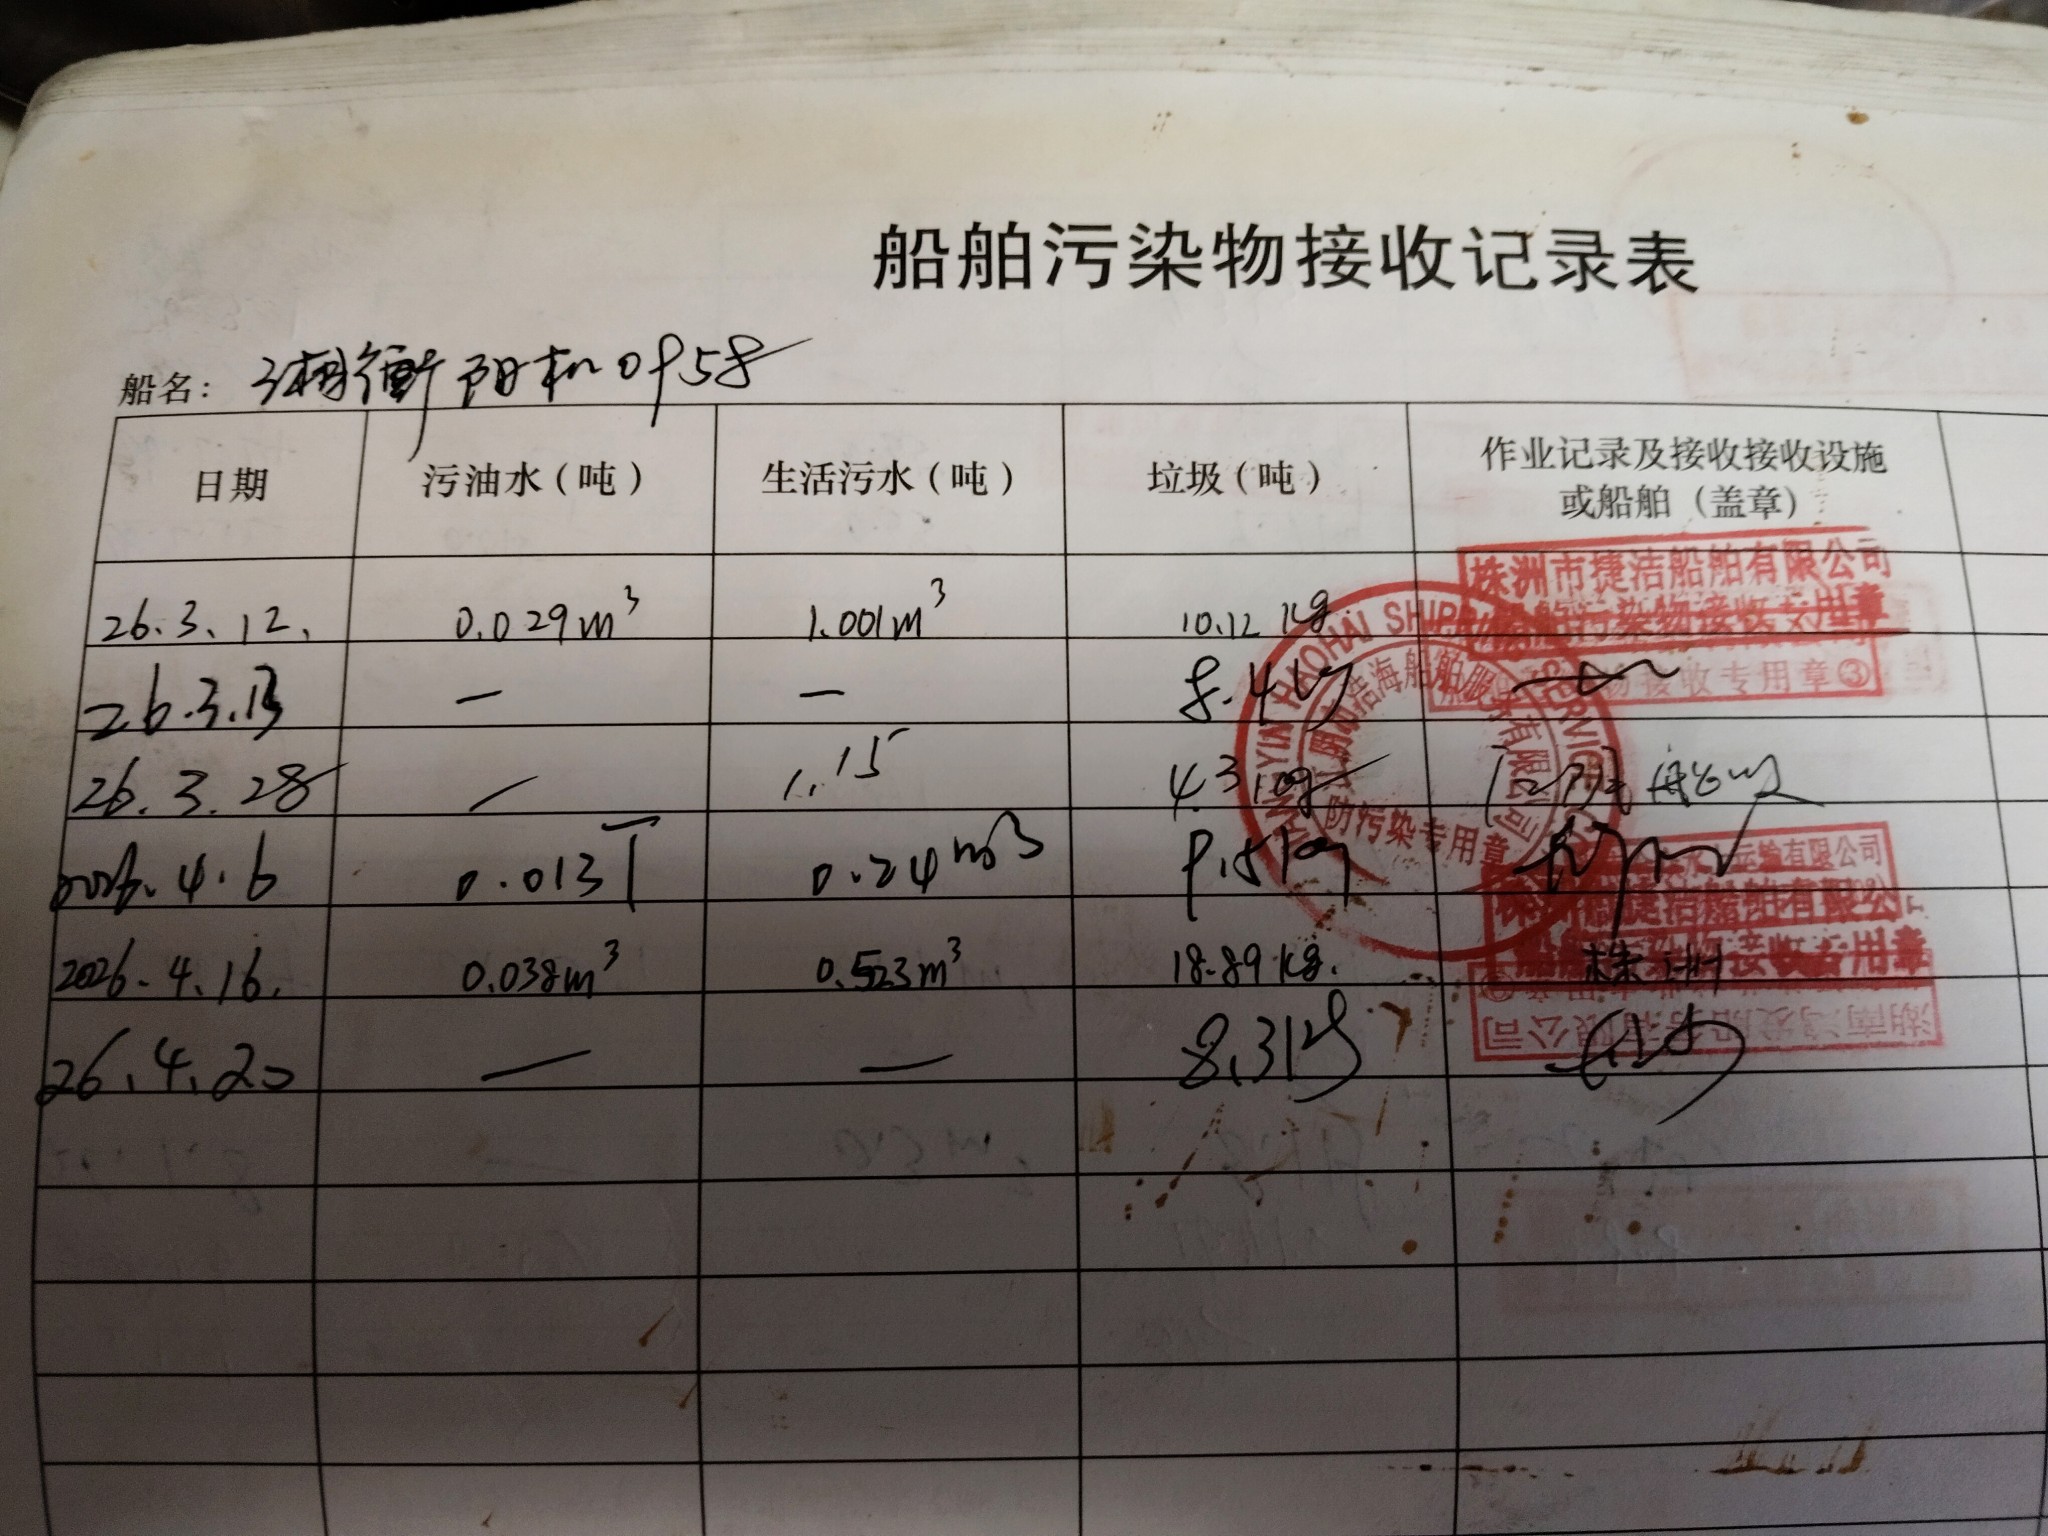 船舶污染物接收记录表
船名： 湘衡阳机0958
日期 污油水（吨） 生活污水（吨） 垃圾（吨） 作业记录及接收接收设施
或船舶（盖章）
株洲市捷洁船舶有限公司
船舶污染物接收专用章
物接收专用章③
26.3.12. 0.029m³ 1.001m³ 10.12 kg.
26.3.13 — — 8.4kg
HAOHAI SHIPPING SERVICE
浩海船舶服务有限公司
防污染专用章
26.3.28 — 1.15
2026.4.6 0.013T 0.24m³ 9.5kg
运输有限公司
株洲市捷洁船舶有限公
船舶污染物接收专用章
2026.4.16. 0.038m³ 0.523m³ 18.89kg. 株洲
湖南鸿发船务有限公司
26.4.20 — — 8.3kg